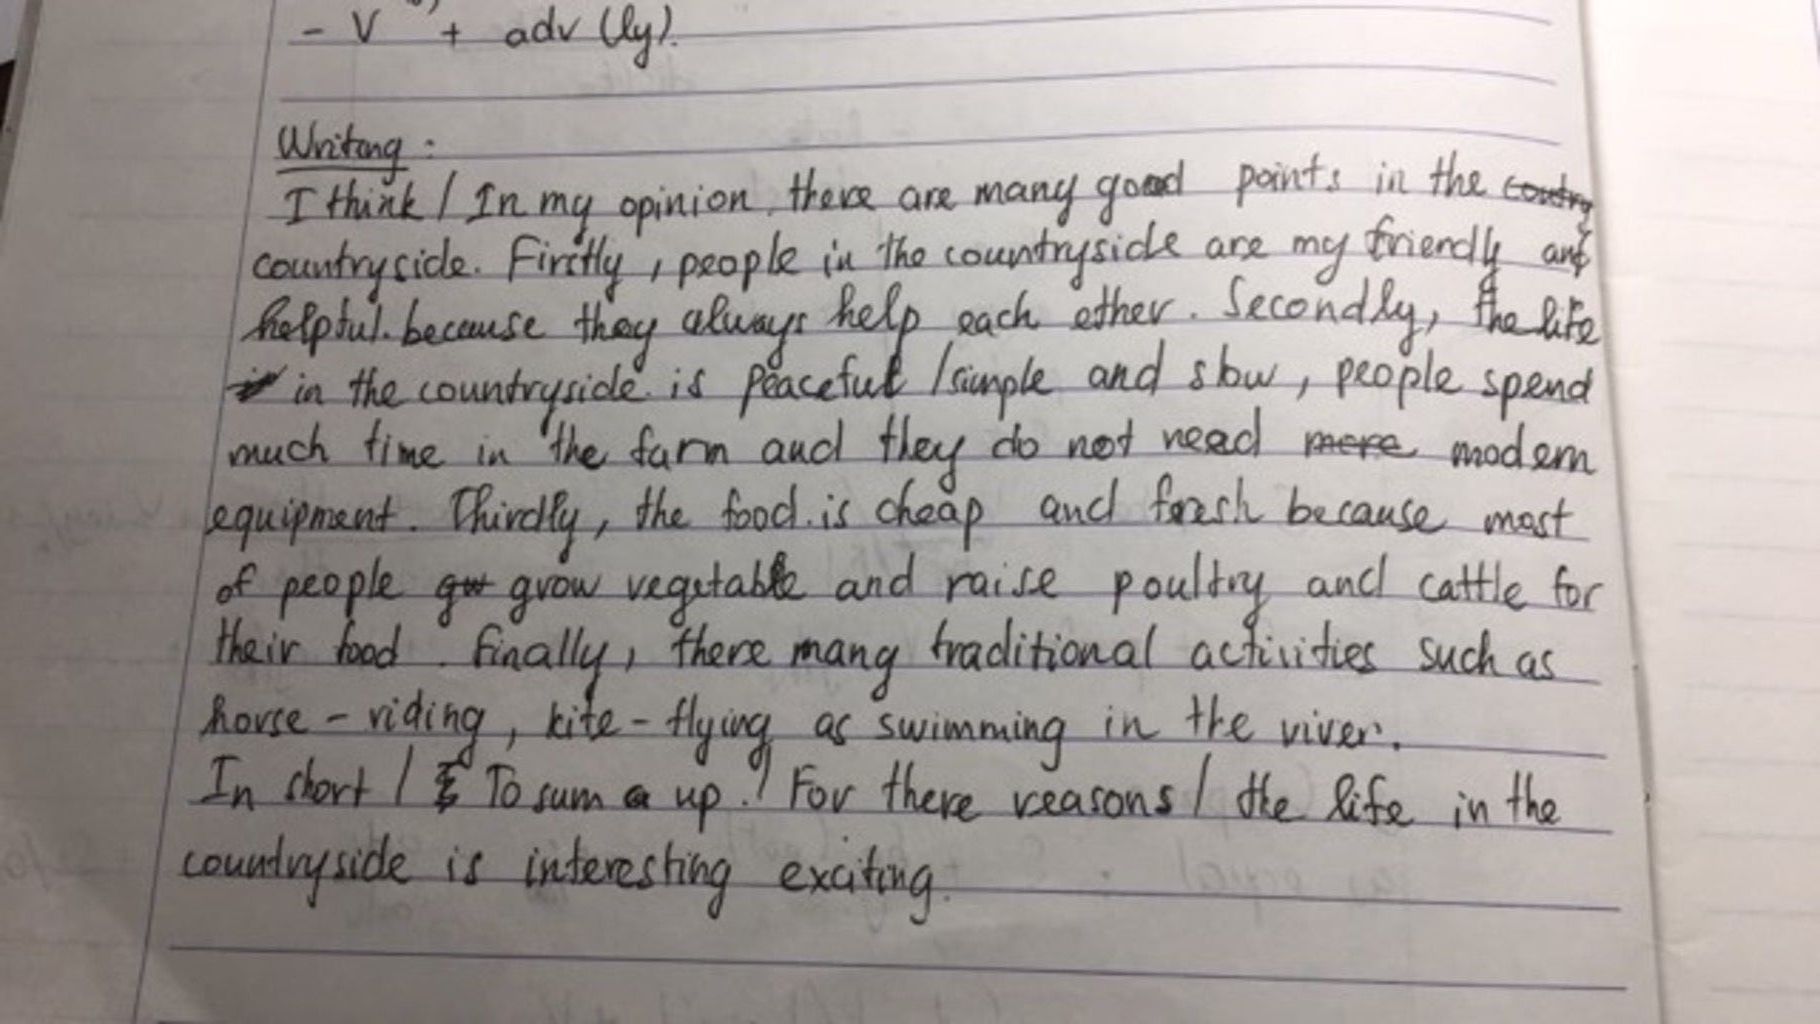 - V + adv (ly).
Writing :
I think / In my opinion, there are many good points in the coutry
countryside. Firstly, people in the countryside are my friendly and
helpful. because they always help each other. Secondly, the life
in the countryside is peaceful / simple and slow, people spend
much time in the farm and they do not need more modern
equipment. Thirdly, the food is cheap and fresh because most
of people grow vegetable and raise poultry and cattle for
their food. Finally, there many traditional activities such as
horse - riding, kite - flying as swimming in the river.
In short / To sum up / For there reasons / the life in the
countryside is interesting exciting.